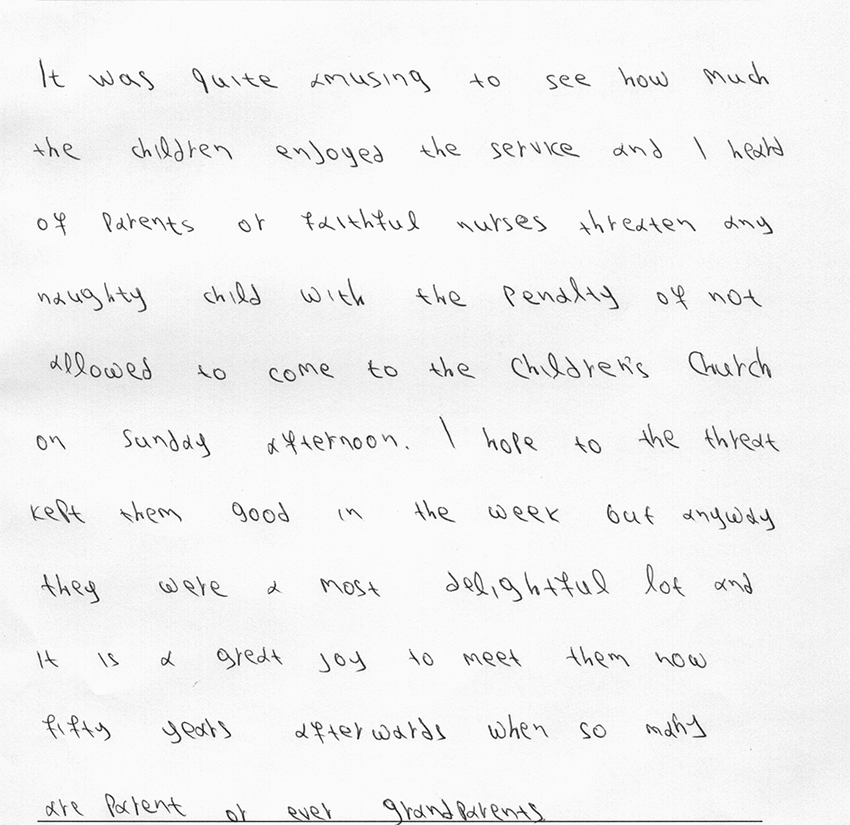 It was quite amusing to see how much
the children enjoyed the service and I heard
of parents or faithful nurses threaten any
naughty child with the penalty of not
allowed to come to the Children's Church
on Sunday afternoon. I hope to the threat
kept them good in the week but anyway
they were a most delightful lot and
It is a great joy to meet them now
fifty years afterwards when so many
are parent or ever grandparents